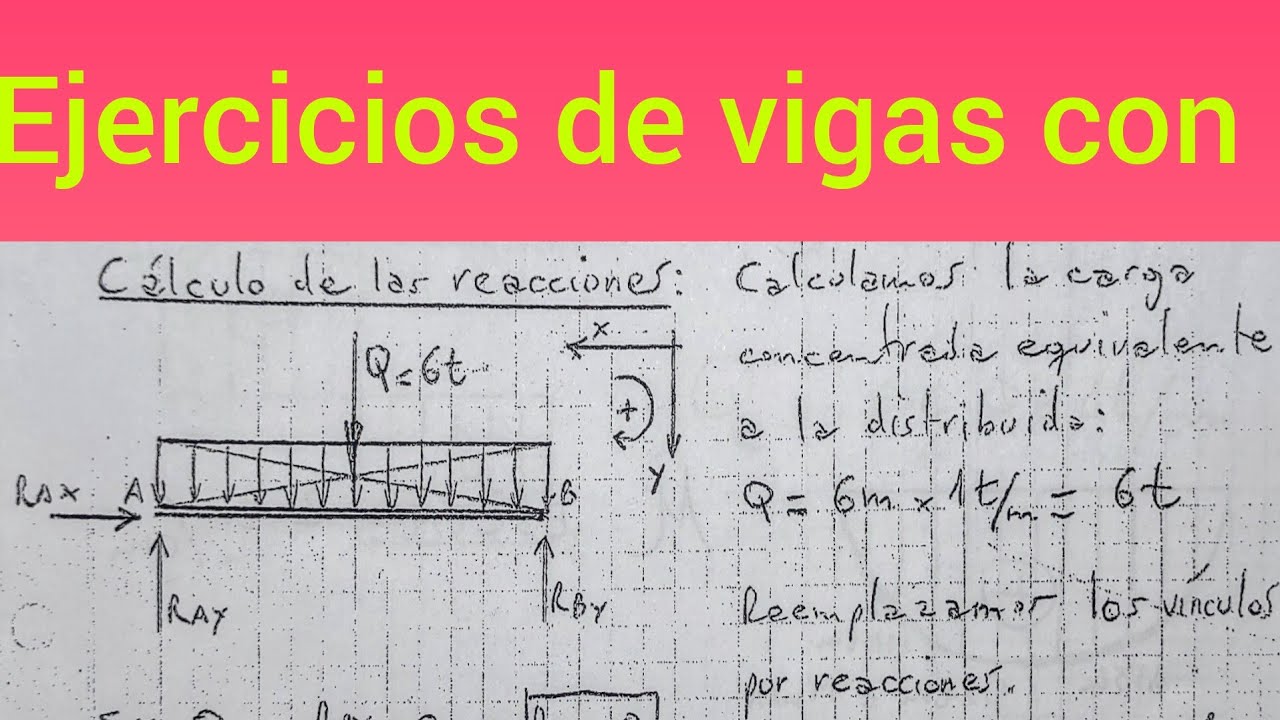 Ejercicios de vigas con
Cálculo de las reacciones:
Q = 6t
x
+
y
RAX
A
B
RAY
RBY
Calculamos la carga
concentrada equivalente
a la distribuida:
Q = 6m x 1t/m = 6t
Reemplazamos los vínculos
por reacciones.